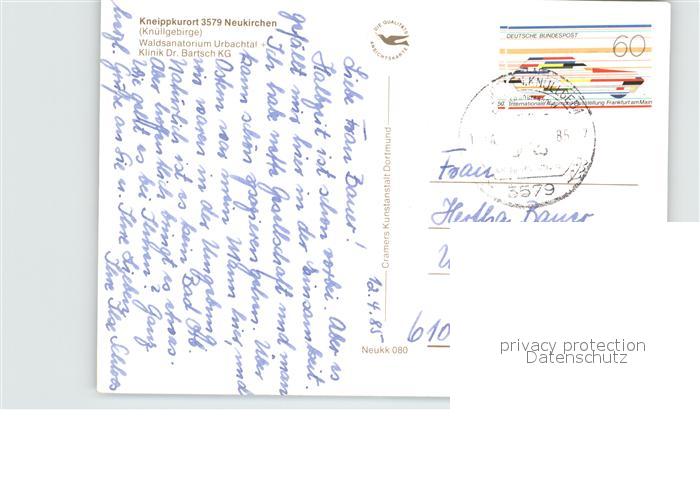 Kneippkurort 3579 Neukirchen
(Knüllgebirge)
Waldsanatorium Urbachtal +
Klinik Dr. Bartsch KG
DIE QUALITÄTS
ANSICHTSKARTE
DEUTSCHE BUNDESPOST
60
50. Internationale Automobil-Ausstellung Frankfurt am Main
85
3579
Cramers Kunstanstalt Dortmund
Neukk 080
12.4.85
Liebe Frau Bauer!
Halbzeit ist schon vorbei. Aber es
gefällt uns hier in der Einsamkeit.
Ich habe nette Gesellschaft und man
kann schön spazieren gehen. Über
Ostern war mein Mann hier und
wir waren in der Umgebung.
Natürlich ist es kein Bad
Aber hoffentlich bringt es etwas.
Wie geht es bei Ihnen? Ganz
herzl. Grüße an Sie u. Ihre Lieben
Ihre
Frau
Hertha Bauer
610
privacy protection
Datenschutz